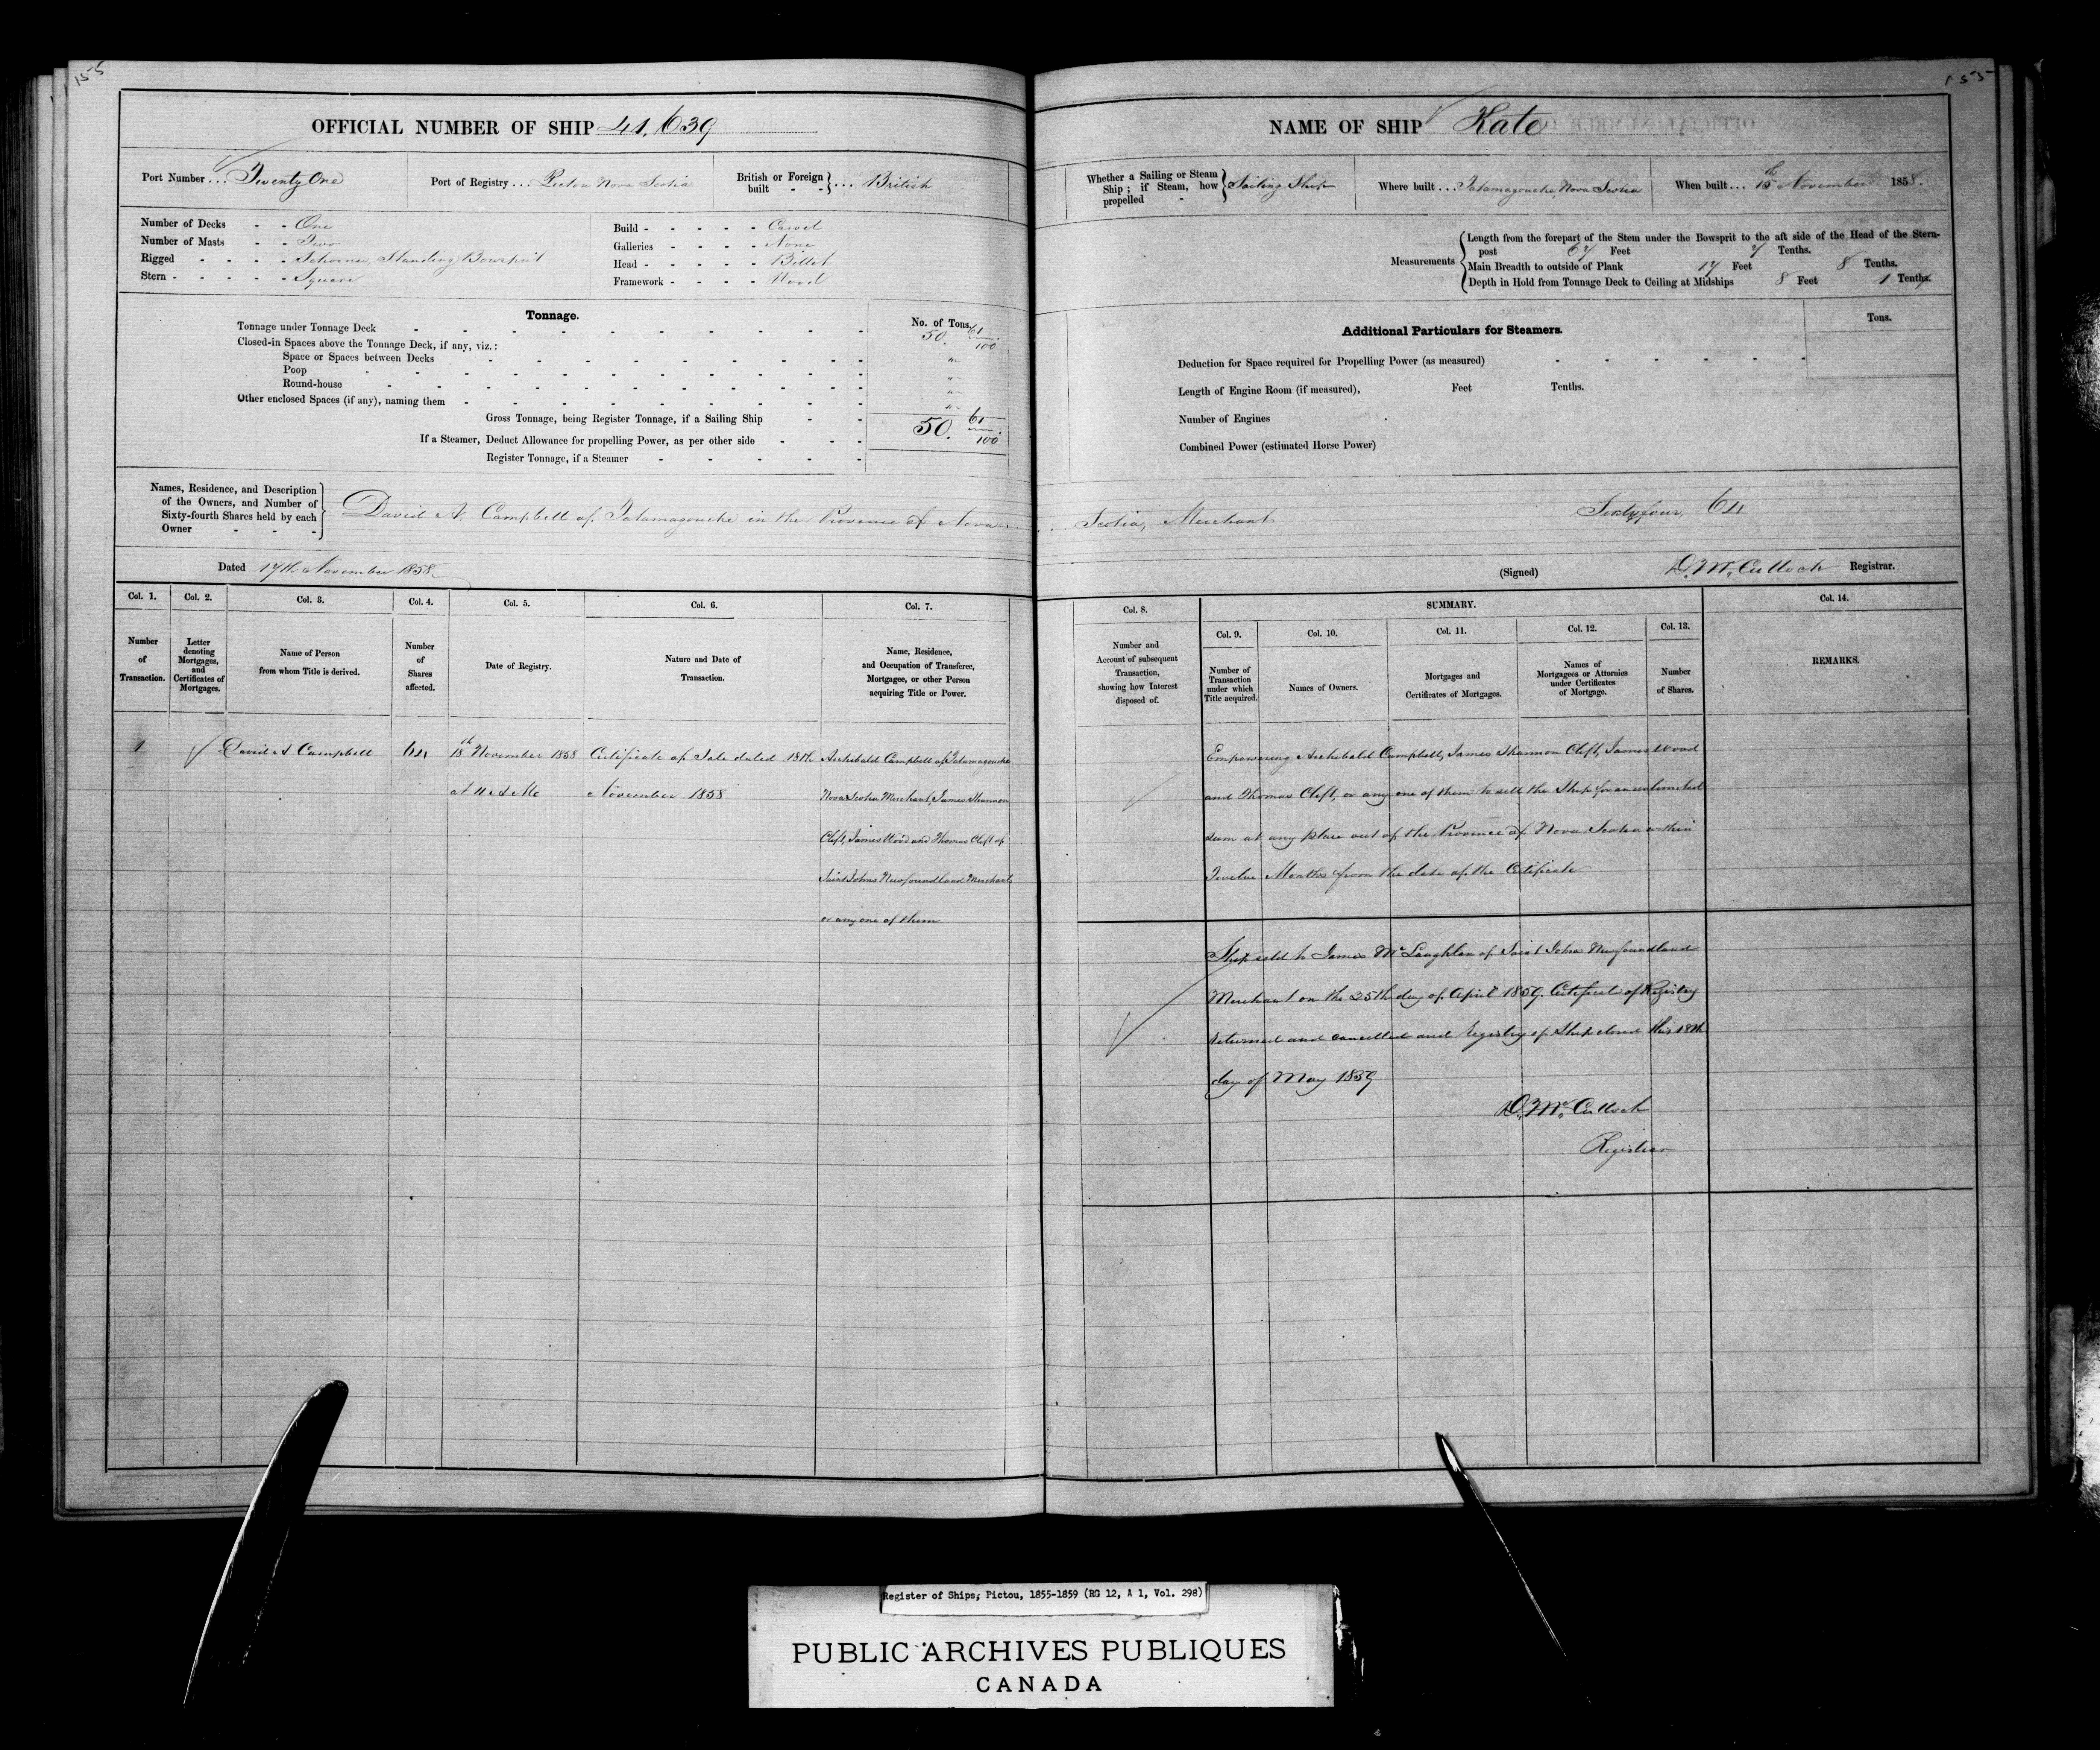 155
155
OFFICIAL NUMBER OF SHIP 41,639
Port Number ... Twenty One
Port of Registry ... Pictou Nova Scotia
British or Foreign built - - } ... British
Number of Decks - - One
Number of Masts - - Two
Rigged - - - - Schooner, Standing Bowsprit
Stern - - - - - Square
Build - - - - - Carvel
Galleries - - - - None
Head - - - - - Billet
Framework - - - - Wood
Tonnage.
No. of Tons.
Tonnage under Tonnage Deck 50. 61/100
Closed-in Spaces above the Tonnage Deck, if any, viz.:
Space or Spaces between Decks "
Poop "
Round-house "
Other enclosed Spaces (if any), naming them "
Gross Tonnage, being Register Tonnage, if a Sailing Ship 50. 61/100
If a Steamer, Deduct Allowance for propelling Power, as per other side
Register Tonnage, if a Steamer
NAME OF SHIP Kate
Whether a Sailing or Steam Ship; if Steam, how propelled - } Sailing Ship
Where built ... Tatamagouche Nova Scotia
When built ... 15th November 1858.
Measurements
Length from the forepart of the Stem under the Bowsprit to the aft side of the Head of the Stern-
post 67 Feet 7 Tenths.
Main Breadth to outside of Plank 17 Feet 8 Tenths.
Depth in Hold from Tonnage Deck to Ceiling at Midships 8 Feet 1 Tenths.
Additional Particulars for Steamers.
Tons.
Deduction for Space required for Propelling Power (as measured)
Length of Engine Room (if measured), Feet Tenths.
Number of Engines
Combined Power (estimated Horse Power)
Names, Residence, and Description
of the Owners, and Number of
Sixty-fourth Shares held by each
Owner - - -
David A. Campbell of Tatamagouche in the Province of Nova Scotia, Merchant Sixty four, 64
Dated 17th November 1858
(Signed) D. McCulloch Registrar.
Col. 1.
Number
of
Transaction.
Col. 2.
Letter
denoting
Mortgages,
and
Certificates of
Mortgages.
Col. 3.
Name of Person
from whom Title is derived.
Col. 4.
Number
of
Shares
affected.
Col. 5.
Date of Registry.
Col. 6.
Nature and Date of
Transaction.
Col. 7.
Name, Residence,
and Occupation of Transferee,
Mortgagee, or other Person
acquiring Title or Power.
Col. 8.
Number and
Account of subsequent
Transaction,
showing how Interest
disposed of.
SUMMARY.
Col. 9.
Number of
Transaction
under which
Title acquired.
Col. 10.
Names of Owners.
Col. 11.
Mortgages and
Certificates of Mortgages.
Col. 12.
Names of
Mortgagees or Attornies
under Certificates
of Mortgage.
Col. 13.
Number
of Shares.
Col. 14.
REMARKS.
1
David A Campbell
64
18th November 1858
At 11 A Mc
Certificate of Sale dated 18th
November 1858
Archibald Campbell of Tatamagouche
Nova Scotia Merchant, James Shannon
Clift, James Wood and Thomas Clift of
Saint Johns Newfoundland Merchants
or any one of them
Empowering Archibald Campbell, James Shannon Clift, James Wood
and Thomas Clift, or any one of them to sell the Ship for an unlimited
sum at any place out of the Province of Nova Scotia within
Twelve Months from the date of the Certificate
Ship sold to James McLaughlan of Saint John Newfoundland
Merchant on the 25th day of April 1859. Certificate of Registry
returned and cancelled and Registry of Ship closed this 18th
day of May 1859
D. McCulloch
Registrar
Register of Ships, Pictou, 1855-1859 (RG 12, A 1, Vol. 298)
PUBLIC ARCHIVES PUBLIQUES
CANADA